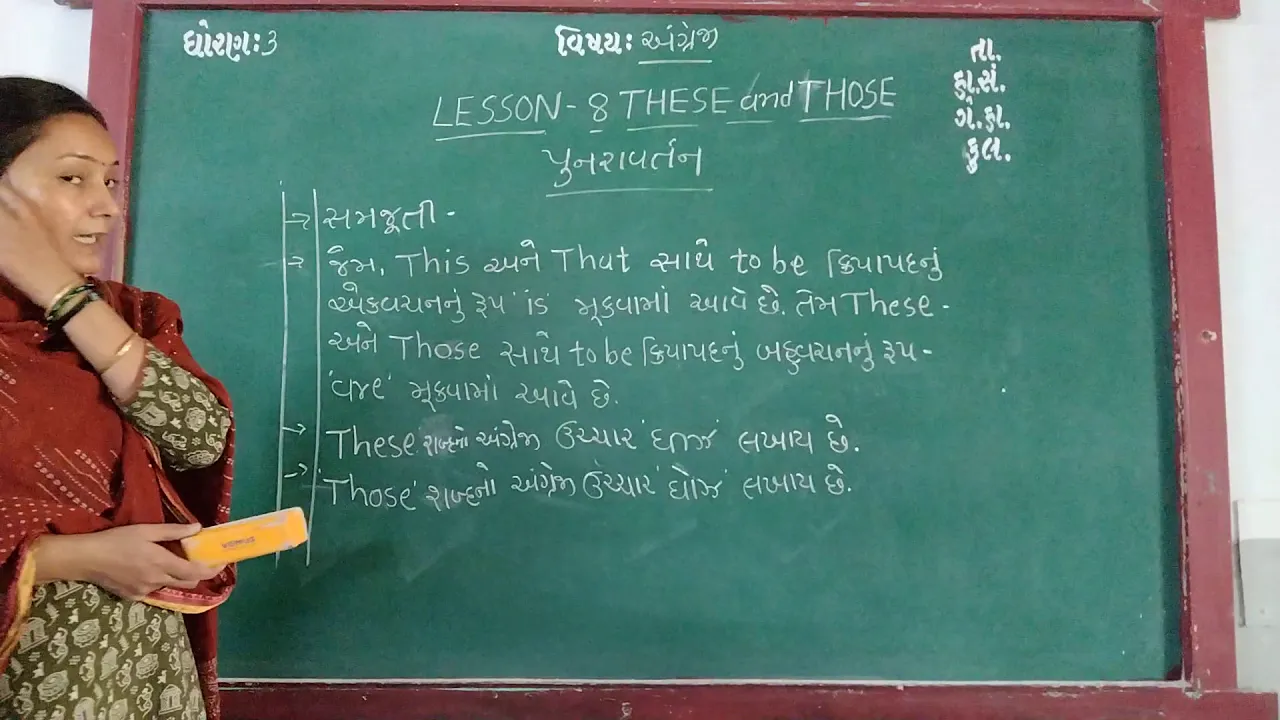 ધોરણ:3
વિષય: અંગ્રેજી
તા.
હા.સં.
ગે.હા.
કુલ.
LESSON - 8 THESE and THOSE
પુનરાવર્તન
→ સમજૂતી -
→ જેમ, This અને That સાથે to be ક્રિયાપદનું
એકવચનનું રૂપ 'is' મૂકવામાં આવે છે. તેમ These -
અને Those સાથે to be ક્રિયાપદનું બહુવચનનું રૂપ -
'are' મૂકવામાં આવે છે.
→ These' શબ્દનો અંગ્રેજી ઉચ્ચાર 'ધીઝ' લખાય છે.
→ 'Those' શબ્દનો અંગ્રેજી ઉચ્ચાર 'ધોઝ' લખાય છે.